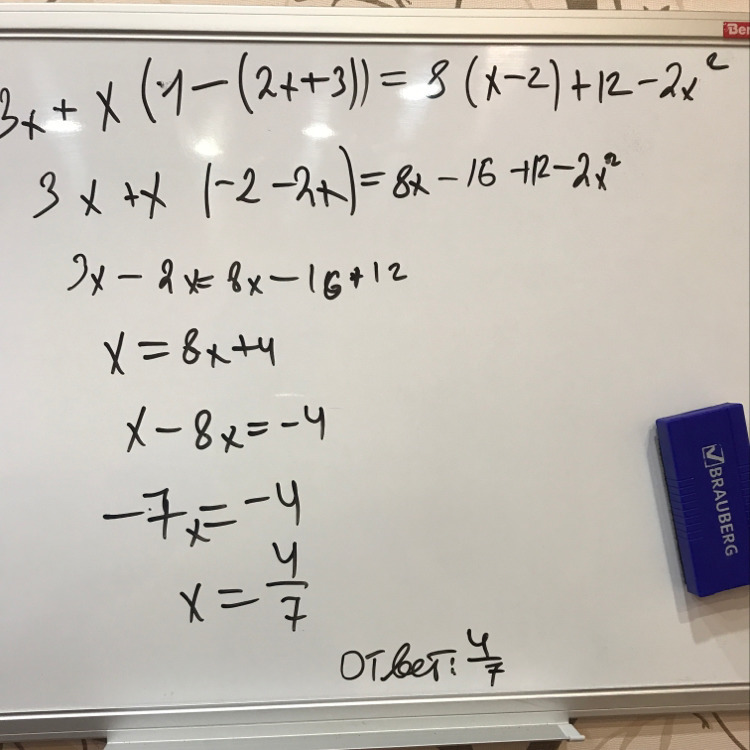 3x + x (1 - (2x+3)) = 8 (x-2) + 12 - 2x²
3x + x (-2 - 2x) = 8x - 16 + 12 - 2x²
3x - 2x = 8x - 16 + 12
x = 8x + 4
x - 8x = -4
-7x = -4
x = 4/7
Ответ: 4/7
Ber
BRAUBERG